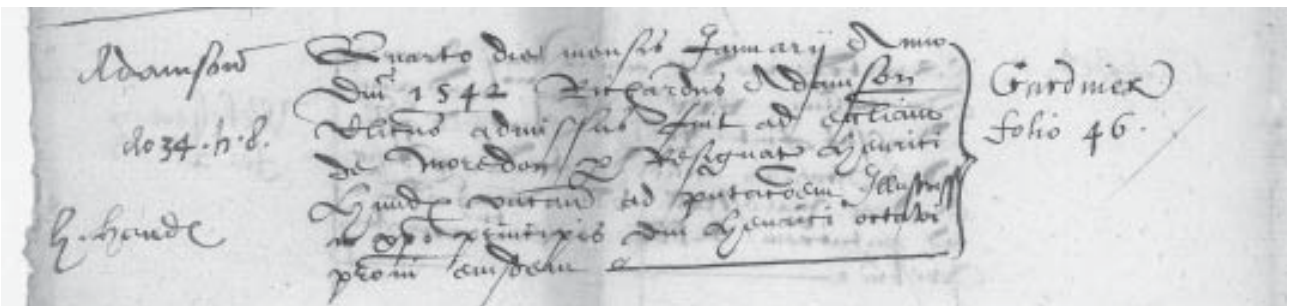 Adamson
Quarto die mensis Januarij Anno
Dni 1542 Richardus Adamson
Clicus admissus fuit ad eccliam
de Moredon p Resignat Henrici
Hunde vacan ad pntacoem Illustriss
in xpo principis dni Henrici octavi
proni eiusdem
do 34. h. 8.
h. hande
Gardiner
folio 46.